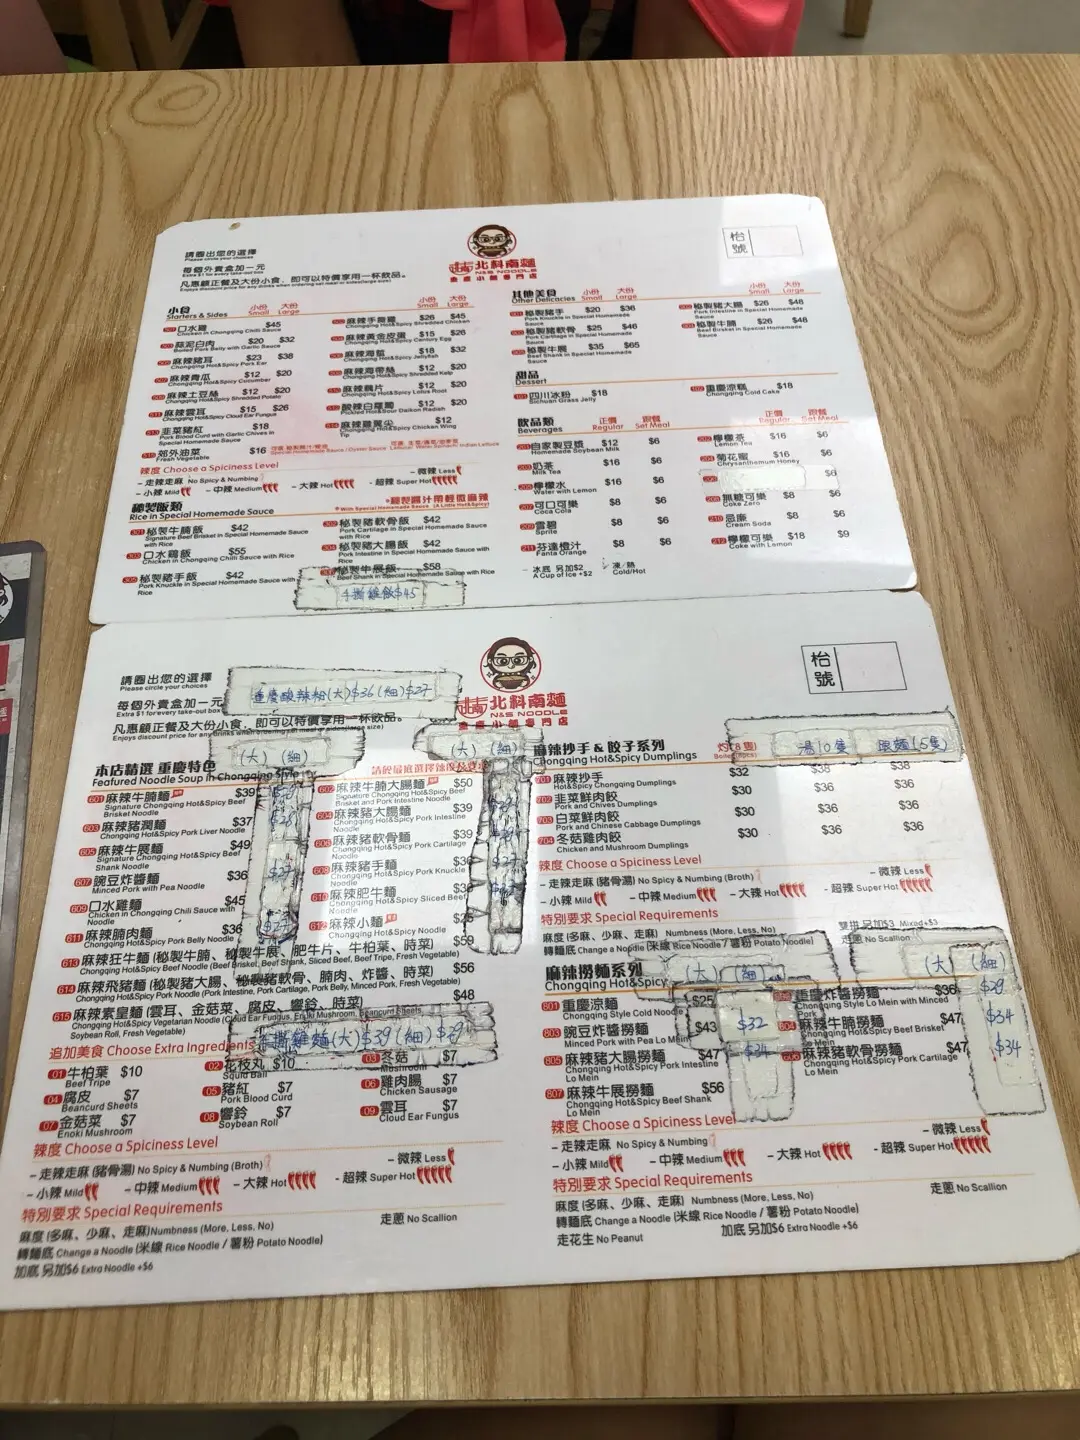 請圈出您的選擇
Please circle your choices
每個外賣盒加一元
Extra $1 for every take-out box
凡惠顧正餐及大份小食，即可以特價享用一杯飲品。
Enjoys discount price for any drinks when ordering set meal or sides(large size)
北科南麵
N&S NOODLE
重慶小麵專門店
枱號
小食
Starters & Sides
小份 Small 大份 Large
口水雞 $45
Chicken in Chongqing Chili Sauce
蒜泥白肉 $20 $32
Boiled Pork Belly with Garlic Sauce
麻辣豬耳 $23 $38
Chongqing Hot&Spicy Pork Ear
麻辣青瓜 $12 $20
Chongqing Hot&Spicy Cucumber
麻辣土豆絲 $12 $20
Chongqing Hot&Spicy Shredded Potato
麻辣雲耳 $15 $26
Chongqing Hot&Spicy Cloud Ear Fungus
韭菜豬紅 $18
Pork Blood Curd with Garlic Chives in Special Homemade Sauce
郊外油菜 $16
Fresh Vegetable
小份 Small 大份 Large
麻辣手撕雞 $26 $45
Chongqing Hot&Spicy Shredded Chicken
麻辣黃金皮蛋 $15 $26
Chongqing Hot&Spicy Century Egg
麻辣海蜇 $18 $32
Chongqing Hot&Spicy Jellyfish
麻辣海帶絲 $12 $20
Chongqing Hot&Spicy Shredded Kelp
麻辣藕片 $12 $20
Chongqing Hot&Spicy Lotus Root
酸辣白蘿蔔 $12 $20
Pickled Hot&Sour Daikon Radish
麻辣雞翼尖 $12
Chongqing Hot&Spicy Chicken Wing Tip
辣度 Choose a Spiciness Level
- 走辣走麻 No Spicy & Numbing
- 微辣 Less
- 小辣 Mild - 中辣 Medium - 大辣 Hot - 超辣 Super Hot
秘製飯類
Rice in Special Homemade Sauce
*秘製醬汁帶輕微麻辣
*With Special Homemade Sauce (A Little Hot&Spicy)
301 秘製牛腩飯 $42
Signature Beef Brisket in Special Homemade Sauce with Rice
302 秘製豬軟骨飯 $42
Pork Cartilage in Special Homemade Sauce with Rice
303 口水鷄飯 $55
Chicken in Chongqing Chili Sauce with Rice
304 秘製豬大腸飯 $42
Pork Intestine in Special Homemade Sauce with Rice
305 秘製豬手飯 $42
Pork Knuckle in Special Homemade Sauce with Rice
秘製牛展飯 $58
Beef Shank in Special Homemade Sauce with Rice
手撕雞飯$45
其他美食
Other Delicacies
小份 Small 大份 Large
秘製豬手 $20 $36
Pork Knuckle in Special Homemade Sauce
秘製豬軟骨 $25 $46
Pork Cartilage in Special Homemade Sauce
秘製牛展 $35 $65
Beef Shank in Special Homemade Sauce
小份 Small 大份 Large
秘製豬大腸 $26 $48
Pork Intestine in Special Homemade Sauce
秘製牛腩 $26 $48
Beef Brisket in Special Homemade Sauce
甜品
Dessert
四川冰粉 $18
Sichuan Grass Jelly
重慶涼糕 $18
Chongqing Cold Cake
飲品類
Beverages
正價 Regular 跟餐 Set Meal
201 自家製豆漿 $12 $6
Homemade Soybean Milk
203 奶茶 $16 $6
Milk Tea
205 檸檬水 $16 $6
Water with Lemon
207 可口可樂 $8 $6
Coca Cola
209 雪碧 $8 $6
Sprite
211 芬達橙汁 $8 $6
Fanta Orange
正價 Regular 跟餐 Set Meal
202 檸檬茶 $16 $6
Lemon Tea
204 菊花蜜 $16 $6
Chrysanthemum Honey
$6
208 無糖可樂 $8 $6
Coke Zero
210 忌廉 $8 $6
Cream Soda
212 檸檬可樂 $18 $9
Coke with Lemon
- 冰底 另加$2
A Cup of Ice +$2
凍╱熱
Cold/Hot
請圈出您的選擇
Please circle your choices
每個外賣盒加一元
Extra $1 for every take-out box
凡惠顧正餐及大份小食，即可以特價享用一杯飲品。
Enjoys discount price for any drinks when ordering set meal or sides(large size)
重慶酸辣粉(大)$36(細)$27
北科南麵
N&S NOODLE
重慶小麵專門店
枱號
(大) (細)
(大) (細)
本店精選 重慶特色
Featured Noodle Soup in Chongqing Style
601 麻辣牛腩麵 $39
Signature Chongqing Hot&Spicy Beef Brisket Noodle
603 麻辣豬潤麵 $37
Chongqing Hot&Spicy Pork Liver Noodle
605 麻辣牛展麵 $49
Signature Chongqing Hot&Spicy Beef Shank Noodle
607 豌豆炸醬麵 $36 $27
Minced Pork with Pea Noodle
609 口水雞麵 $45
Chicken in Chongqing Chili Sauce with Noodle
611 麻辣腩肉麵 $36 $27
Chongqing Hot&Spicy Pork Belly Noodle
602 麻辣牛腩大腸麵 $50
Signature Chongqing Hot&Spicy Beef Brisket and Pork Intestine Noodle
604 麻辣豬大腸麵 $39
Chongqing Hot&Spicy Pork Intestine Noodle
606 麻辣豬軟骨麵 $39
Chongqing Hot&Spicy Pork Cartilage Noodle
608 麻辣豬手麵 $36
Chongqing Hot&Spicy Pork Knuckle Noodle
610 麻辣肥牛麵
Chongqing Hot&Spicy Sliced Beef Noodle
612 麻辣小麵 $25
Chongqing Hot&Spicy Noodle
613 麻辣狂牛麵 (秘製牛腩、秘製牛展、肥牛片、牛柏葉、時菜) $59
Chongqing Hot&Spicy Beef Noodle (Beef Brisket, Beef Shank, Sliced Beef, Beef Tripe, Fresh Vegetable)
614 麻辣飛豬麵 (秘製豬大腸、秘製豬軟骨、腩肉、炸醬、時菜) $56
Chongqing Hot&Spicy Pork Noodle (Pork Intestine, Pork Cartilage, Pork Belly, Minced Pork, Fresh Vegetable)
615 麻辣素皇麵 (雲耳、金菇菜、腐皮、響鈴、時菜) $48
Chongqing Hot&Spicy Vegetarian Noodle (Cloud Ear Fungus, Enoki Mushroom, Beancurd Sheets, Soybean Roll, Fresh Vegetable)
手撕雞麵(大)$39(細)$29
追加美食 Choose Extra Ingredients
01 牛柏葉 $10
Beef Tripe
02 花枝丸 $10
Squid Ball
03 冬菇 $7
Mushroom
04 腐皮 $7
Beancurd Sheets
05 豬紅 $7
Pork Blood Curd
06 雞肉腸 $7
Chicken Sausage
07 金菇菜 $7
Enoki Mushroom
08 響鈴 $7
Soybean Roll
09 雲耳 $7
Cloud Ear Fungus
辣度 Choose a Spiciness Level
- 走辣走麻 (豬骨湯) No Spicy & Numbing (Broth)
- 微辣 Less
- 小辣 Mild - 中辣 Medium - 大辣 Hot - 超辣 Super Hot
特別要求 Special Requirements
麻度 (多麻、少麻、走麻) Numbness (More, Less, No)
走蔥 No Scallion
轉麵底 Change a Noodle (米線 Rice Noodle / 薯粉 Potato Noodle)
加底 另加$6 Extra Noodle +$6
麻辣抄手 & 餃子系列
Chongqing Hot&Spicy Dumplings
湯10隻 跟麵(5隻)
701 麻辣抄手 $32 $38 $38
Hot&Spicy Chongqing Dumplings
702 韭菜鮮肉餃 $30 $36 $36
Pork and Chives Dumplings
703 白菜鮮肉餃 $30 $36 $36
Pork and Chinese Cabbage Dumplings
704 冬菇雞肉餃 $30 $36 $36
Chicken and Mushroom Dumplings
辣度 Choose a Spiciness Level
- 走辣走麻 (豬骨湯) No Spicy & Numbing (Broth)
- 微辣 Less
- 小辣 Mild - 中辣 Medium - 大辣 Hot - 超辣 Super Hot
特別要求 Special Requirements
雙拼 另加$3 Mixed+$3
麻度 (多麻、少麻、走麻) Numbness (More, Less, No)
走蔥 No Scallion
轉麵底 Change a Noodle (米線 Rice Noodle / 薯粉 Potato Noodle)
麻辣撈麵系列
Chongqing Hot&Spicy
(大) (細)
(大) (細)
801 重慶涼麵 $25
Chongqing Style Cold Noodle
803 豌豆炸醬撈麵 $43 $32
Minced Pork with Pea Lo Mein
805 麻辣豬大腸撈麵 $47 $34
Chongqing Hot&Spicy Pork Intestine Lo Mein
807 麻辣牛展撈麵 $56
Chongqing Hot&Spicy Beef Shank Lo Mein
重慶炸醬撈麵 $36 $29
Chongqing Style Lo Mein with Minced Pork
804 麻辣牛腩撈麵 $47 $34
Chongqing Hot&Spicy Beef Brisket Lo Mein
806 麻辣豬軟骨撈麵 $47 $34
Chongqing Hot&Spicy Pork Cartilage Lo Mein
辣度 Choose a Spiciness Level
- 走辣走麻 No Spicy & Numbing
- 微辣 Less
- 小辣 Mild - 中辣 Medium - 大辣 Hot - 超辣 Super Hot
特別要求 Special Requirements
麻度 (多麻、少麻、走麻) Numbness (More, Less, No)
走蔥 No Scallion
轉麵底 Change a Noodle (米線 Rice Noodle / 薯粉 Potato Noodle)
走花生 No Peanut
加底 另加$6 Extra Noodle +$6